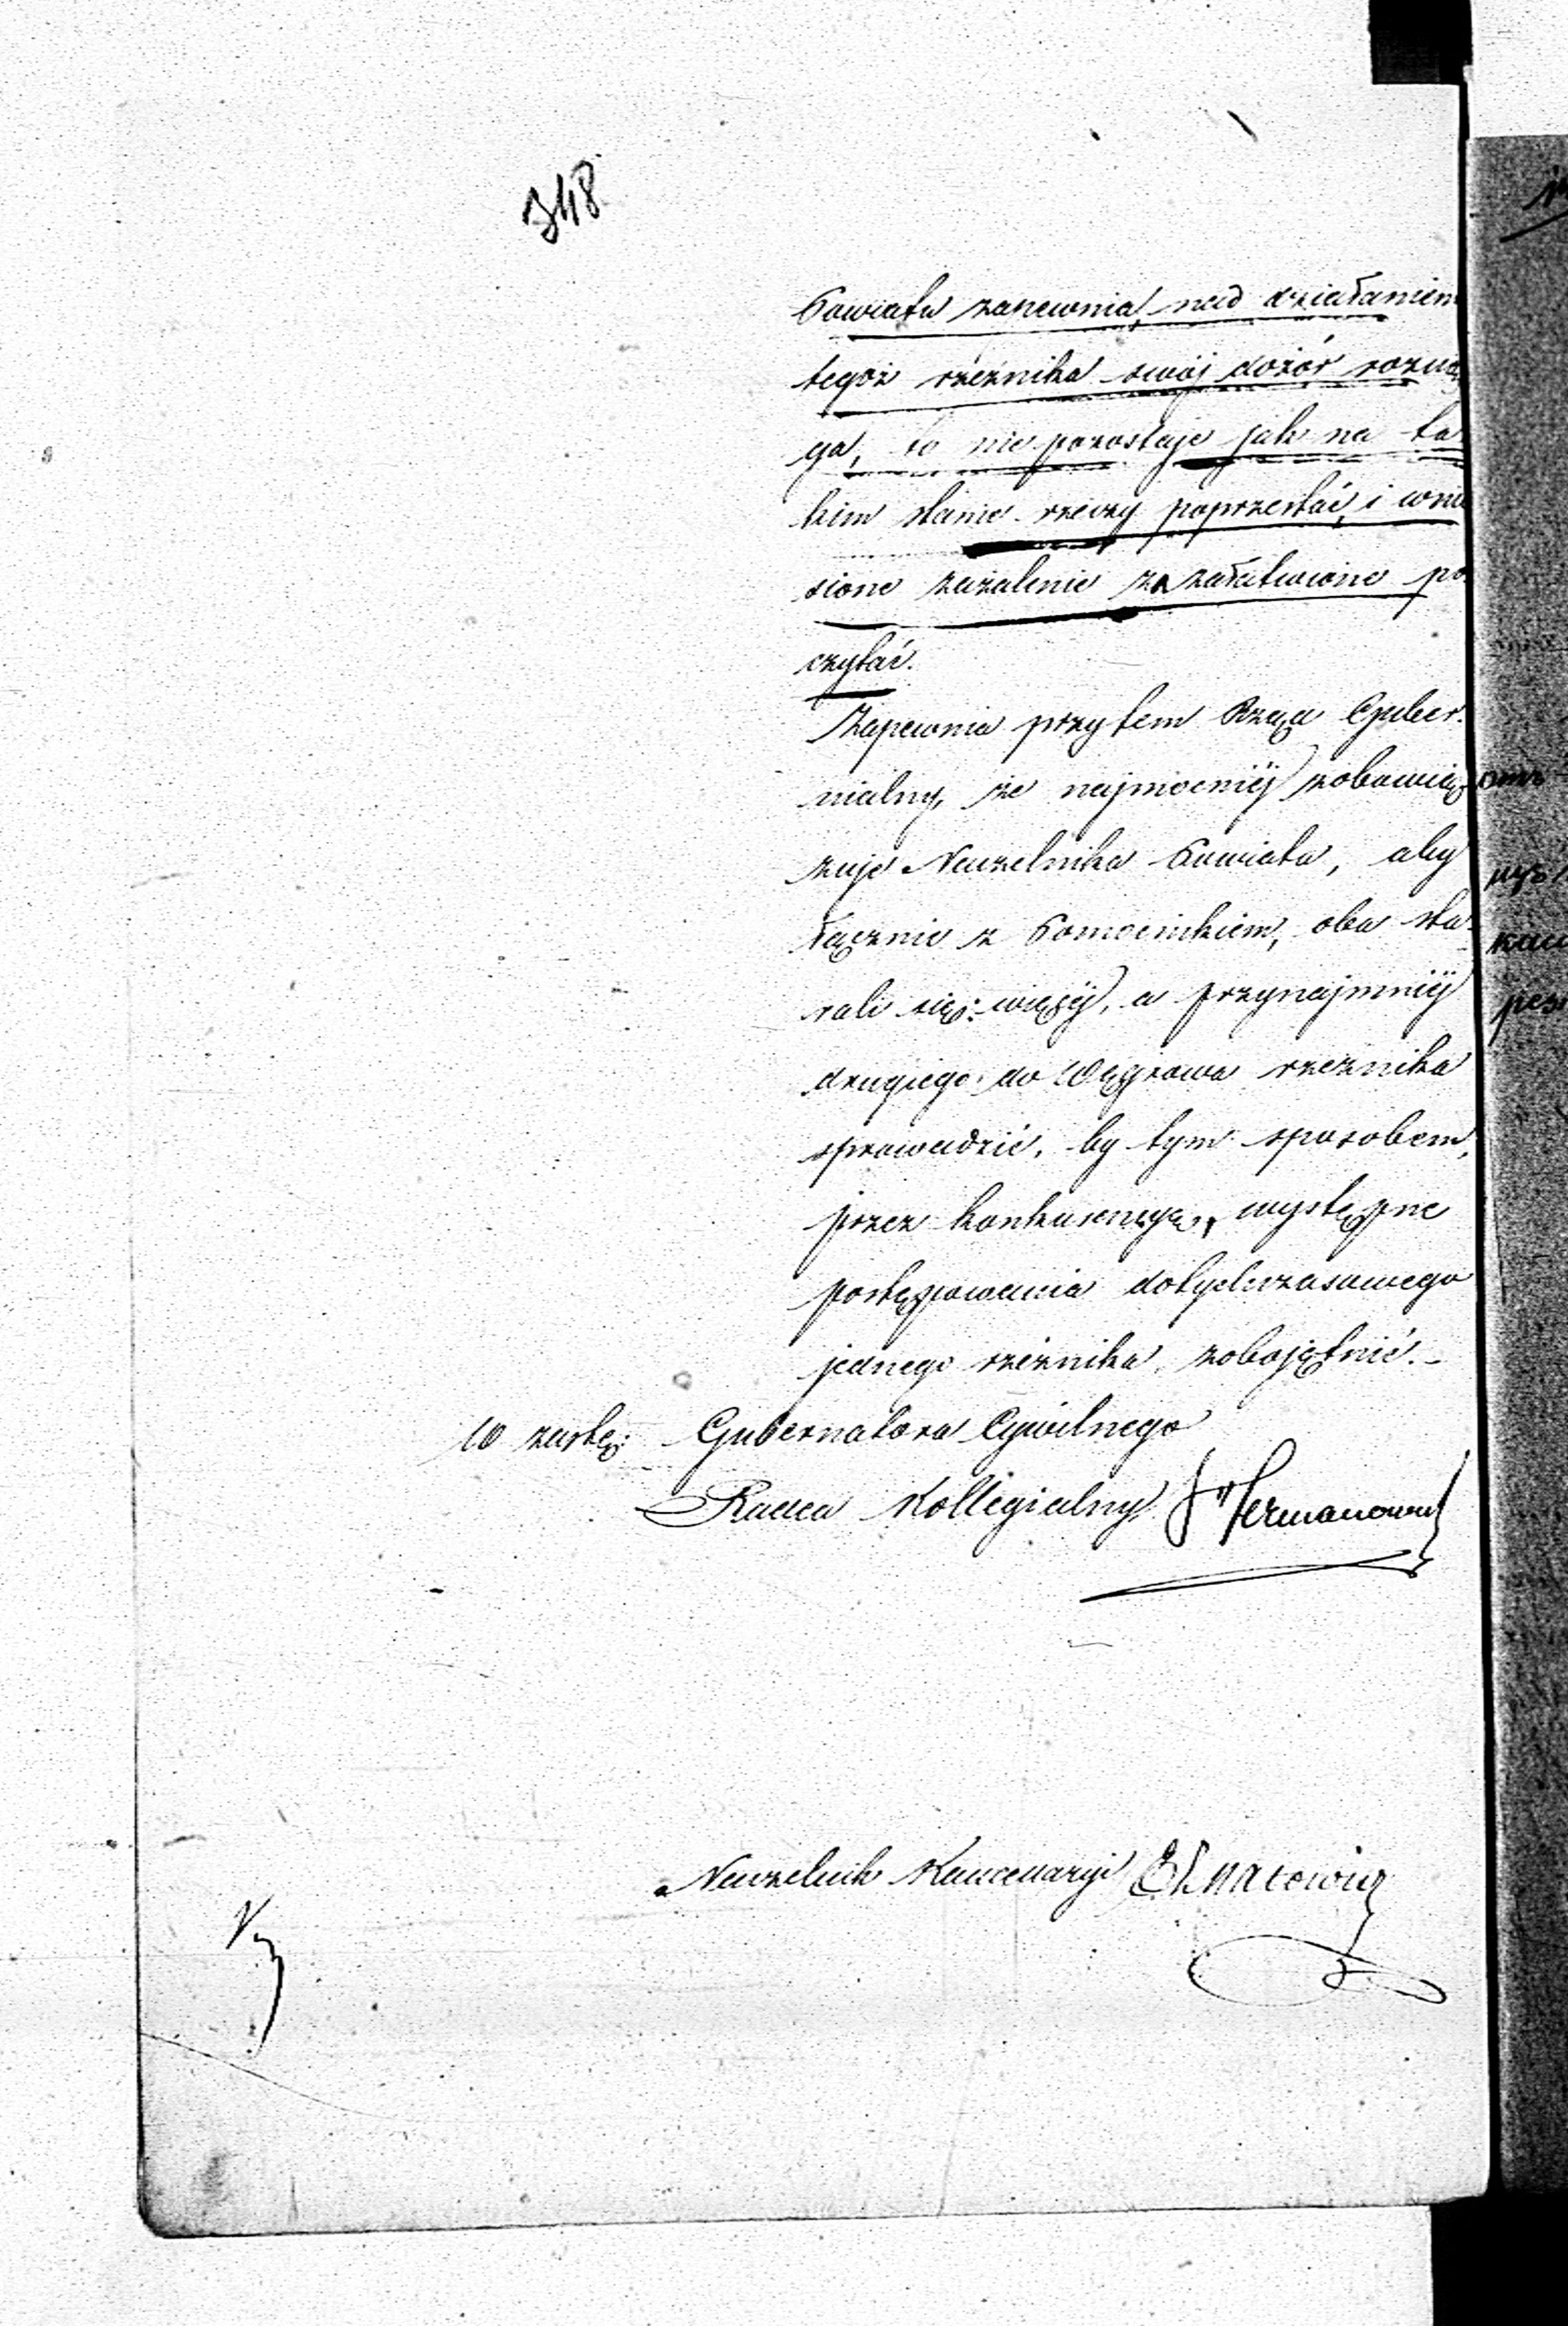 348
Powiatu zapewnia, nad działaniem
tegoż rzeźnika swój dozór rozcią
ga, to nie pozostaje jak na ta-
kim stanie rzeczy poprzestać, i wnie
sione zażalenie za załatwione po
czytać.
Zapewnia przytem Rząd Guber-
nialny, że najmocniéj zobowią-
zuje Naczelnika Powiatu, aby
łącznie z Pomocnikiem, oba sta-
rali się: więcéj, a przynajmniéj
drugiego do Węgrowa rzeźnika
sprowadzić, by tym sposobem,
przez konkurencyę, występne
postępowania dotychczasowego
jednego rzeźnika, zobojętnić.-
W zastę: Gubernatora Cywilnego
Radca Kollegialny
Naczelnik Kancellaryi